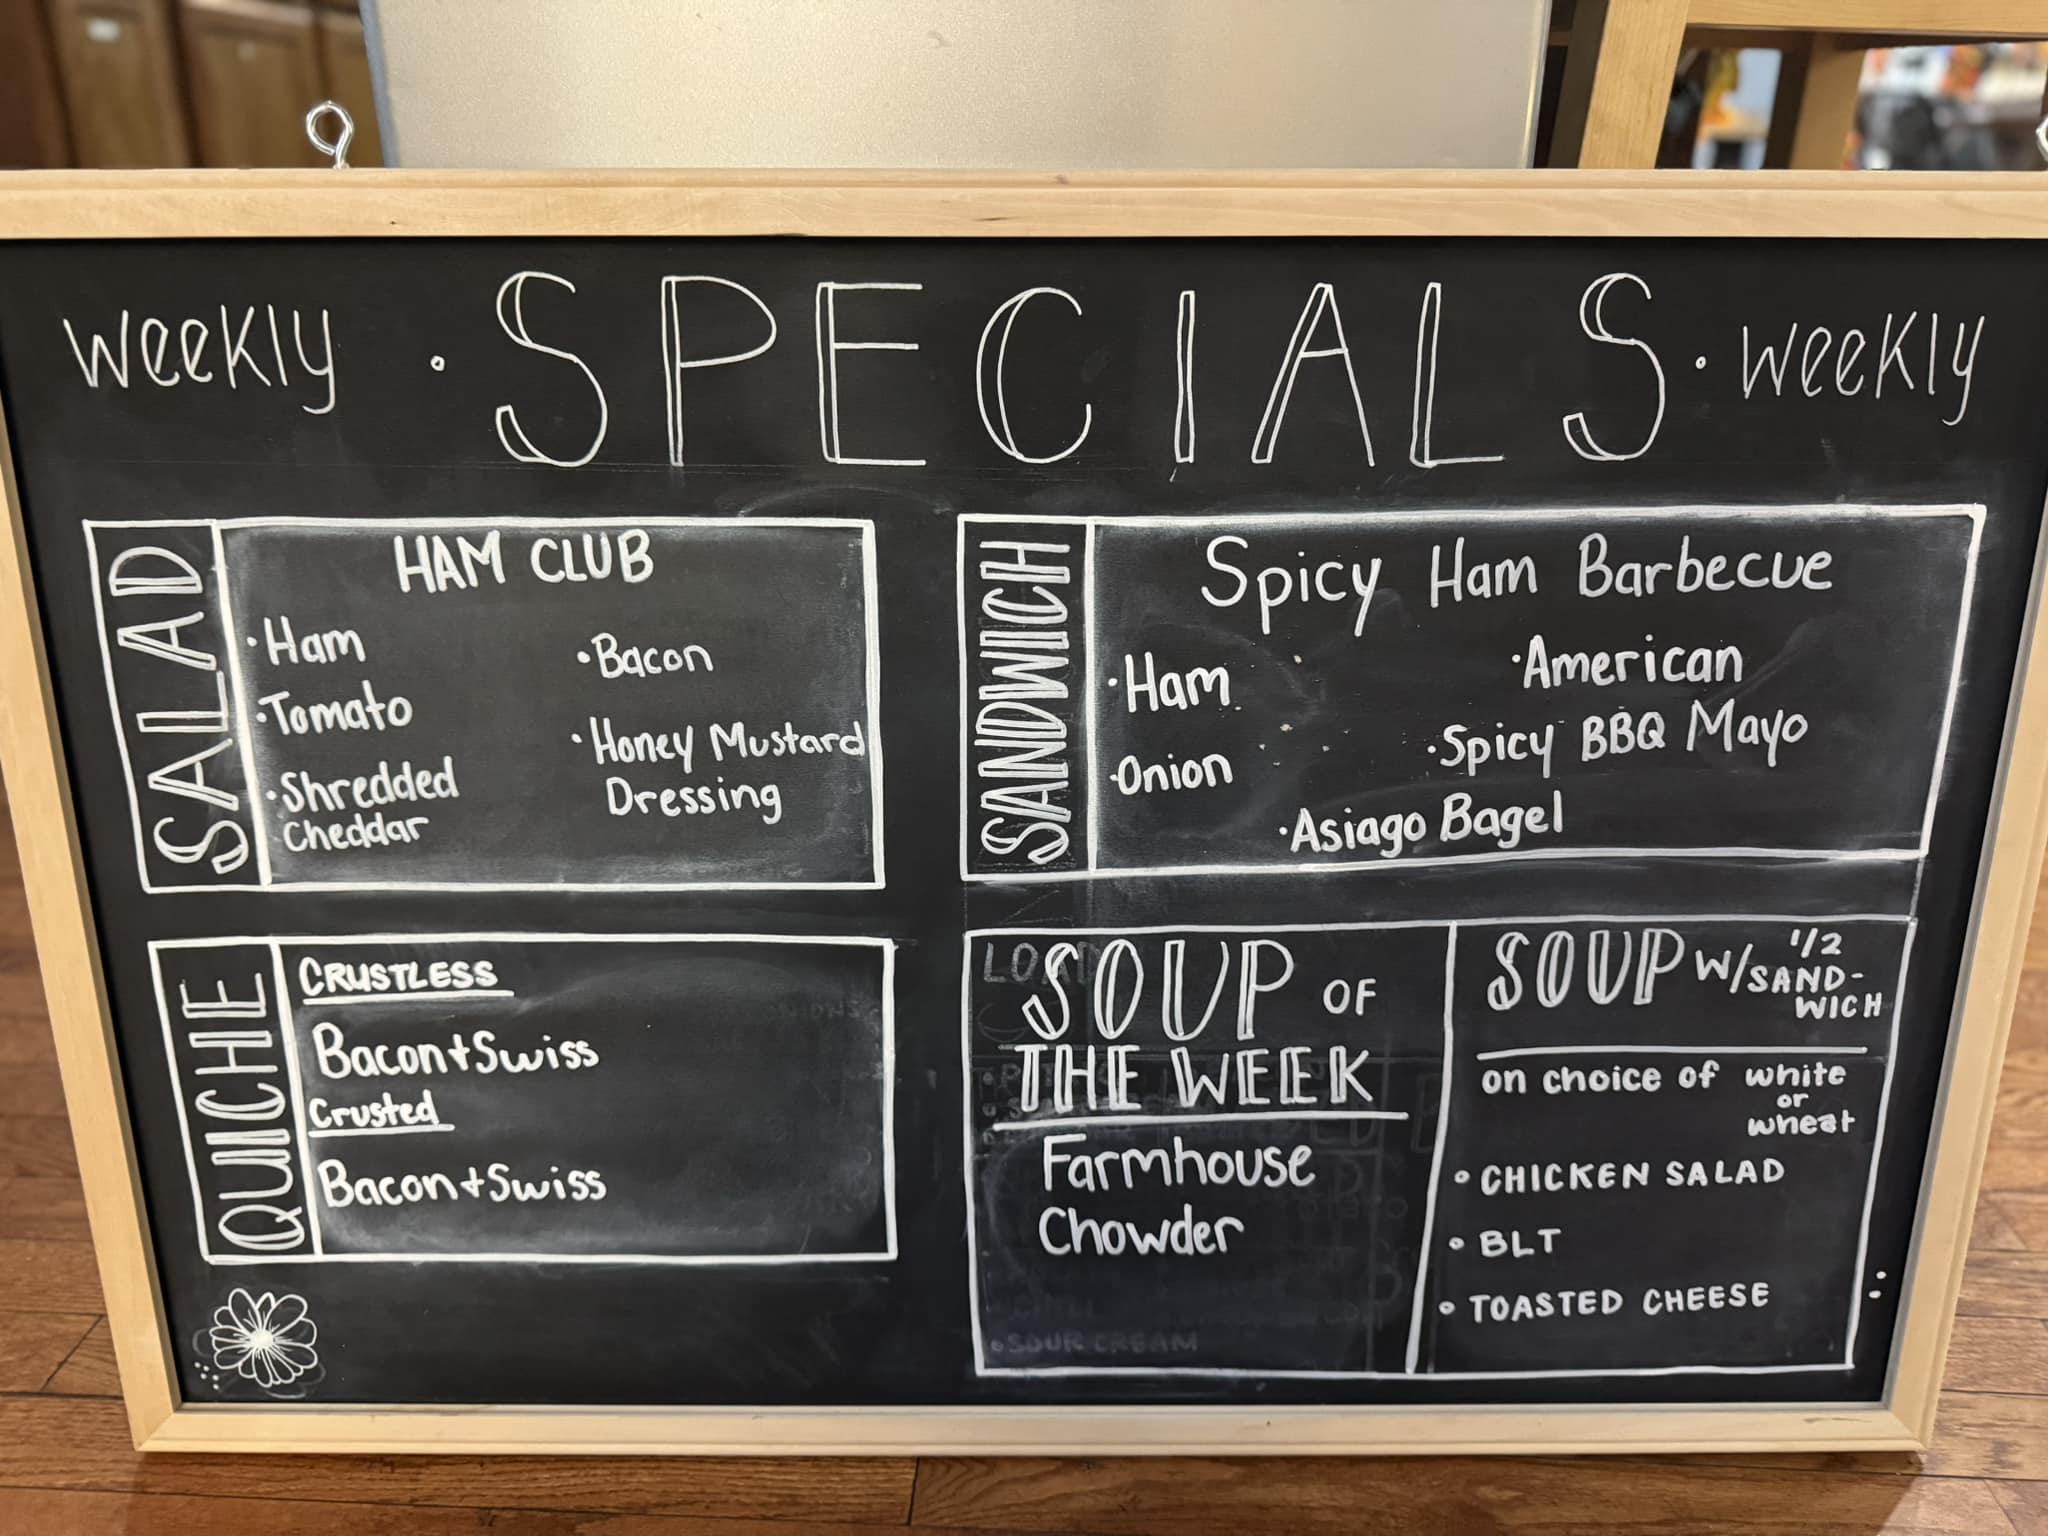 weekly • SPECIALS • weekly
SALAD
HAM CLUB
•Ham
•Tomato
•Shredded
Cheddar
•Bacon
•Honey Mustard
Dressing
SANDWICH
Spicy Ham Barbecue
•Ham
•Onion
•American
•Spicy BBQ Mayo
•Asiago Bagel
QUICHE
CRUSTLESS
Bacon+Swiss
Crusted
Bacon+Swiss
SOUP OF
THE WEEK
Farmhouse
Chowder
•SOUR CREAM
SOUP W/ 1/2
SAND-
WICH
on choice of white
or
wheat
• CHICKEN SALAD
• BLT
• TOASTED CHEESE